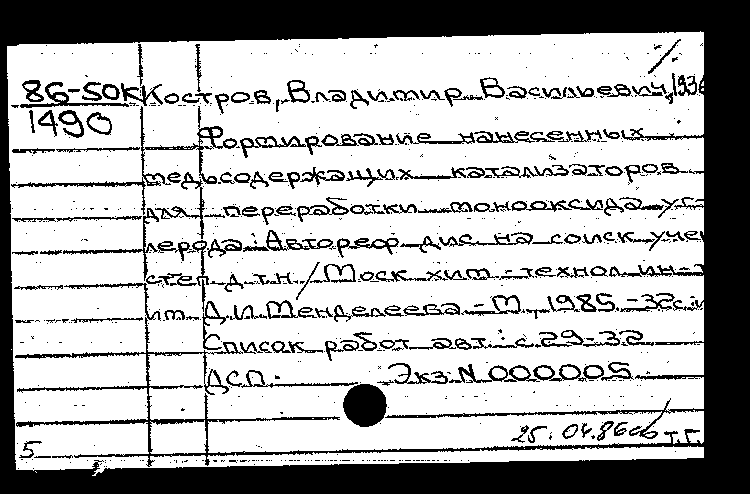 86-50К Костров, Владимир Васильевич, 1936
1490
Формирование нанесенных
медьсодержащих катализаторов
для переработки монооксида уг
лерода: Автореф дис на соиск учен
степ д.т.н / Моск хим-технол ин-т
им Д.И.Менделеева - М, 1985 - 32с.
Список работ авт: с 29-32
ДСП. Экз N 000005
25.04.86 т.г.
5